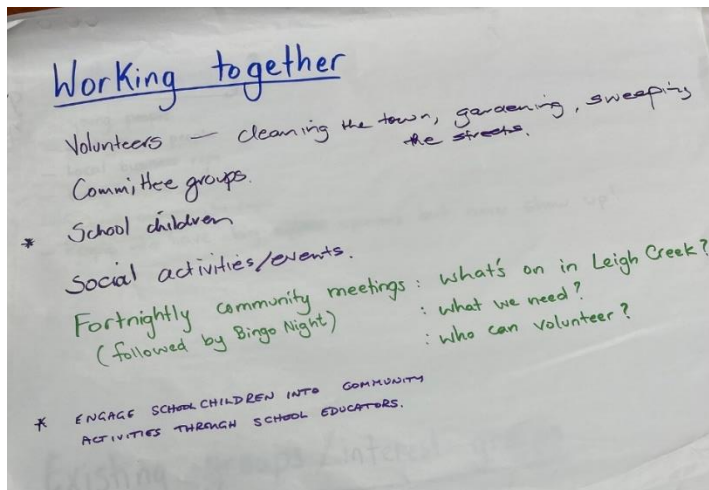 Working together
Volunteers — cleaning the town, gardening, sweeping
the streets.
Committee groups.
* School children
Social activities/events.
Fortnightly community meetings : what's on in Leigh Creek?
(followed by Bingo Night) : what we need?
: who can volunteer?
* ENGAGE SCHOOL CHILDREN INTO COMMUNITY
ACTIVITIES THROUGH SCHOOL EDUCATORS.
Existing groups/interest